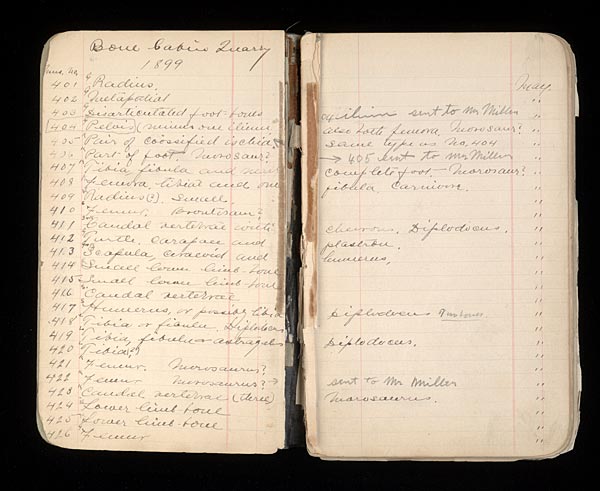 Bone Cabin Quarry
1899
401 " Radius
402 " Metapodial
403 " Disarticulated foot-bones
404 " Pelvis (minus one ilium
405 " Pair of coossified ischia
406 " Part of foot – Morosaur?
407 " Tibia fibula and
408 " Femora, tibia and one
409 " Radius (?). Small.
410 " Femur. Brontosaur?
411 " Caudal vertebrae with
412 " Turtle, carapace and
413 " Scapula, coracoid and
414 " Small lower limb-bone
415 " Small lower limb-bone
416 " Caudal vertebrae
417 " Humerus, or possibly tibia
418 " Tibia or fibula. Diplodocus
419 " Tibia, fibula or astragalus
420 " Tibia?
421 " Femur. Morosaurus?
422 " Femur Morosaurus? →
423 " Caudal vertebrae (three)
424 " Lower limb-bone
425 " Lower limb-bone
426 " Femur
May.
ilium sent to Mr Miller "
also both femora, Morosaur? "
same type as No. 404 "
→ 405 sent to Mr Miller "
complete foot – Morosaur? "
fibula. Carnivore. "
"
"
chevrons. Diplodocus. "
plastron. "
humerus. "
"
"
"
Diplodocus "
"
Diplodocus. "
"
sent to Mr Miller "
Morosaurus. "
"
"
"